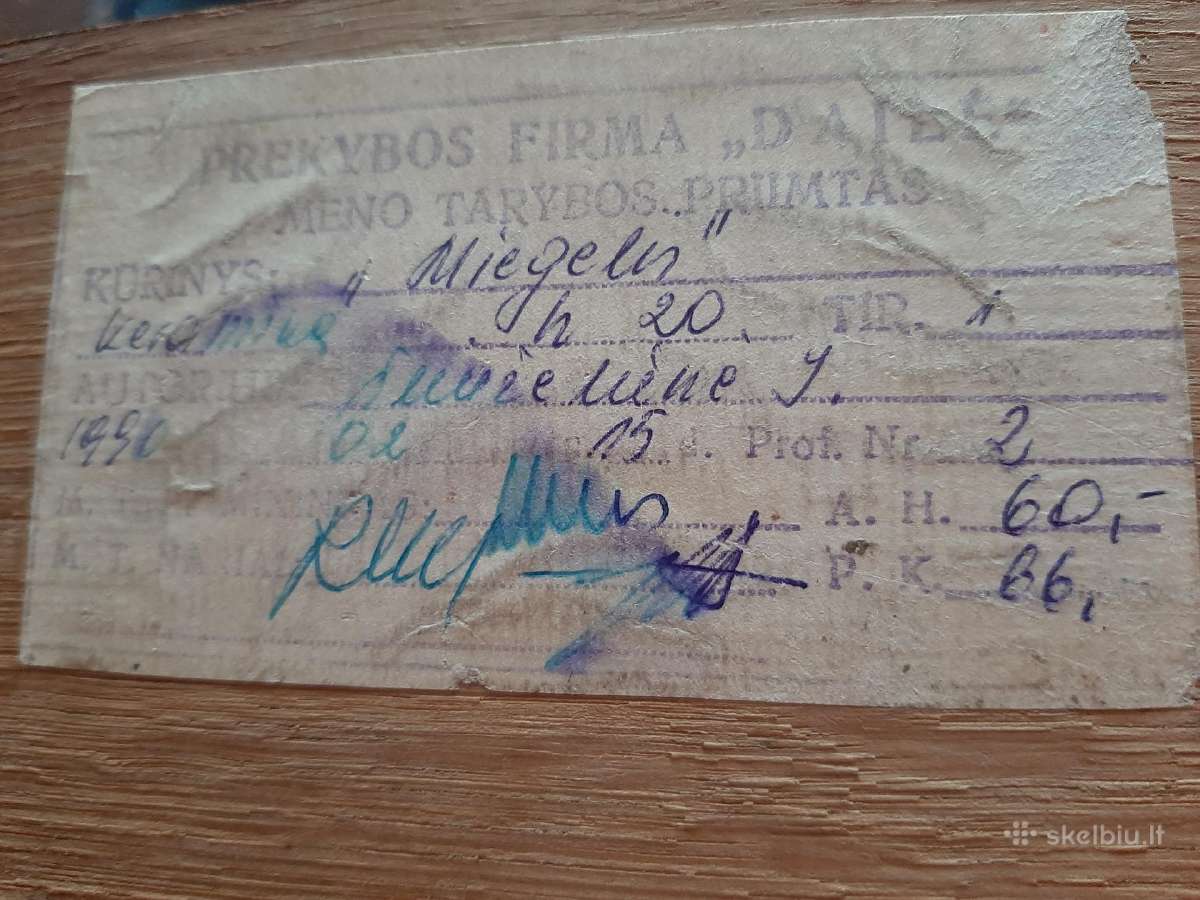 PREKYBOS FIRMA „DAILĖ“
MENO TARYBOS PRIIMTAS
KŪRINYS: „Miegelis"
keramika h 20 TIR. 1
AUTORIUS J.
1990 02 15 d. Prof. Nr. 2
A. H. 60,-
M. T. P. K. 66,
skelbiu.lt